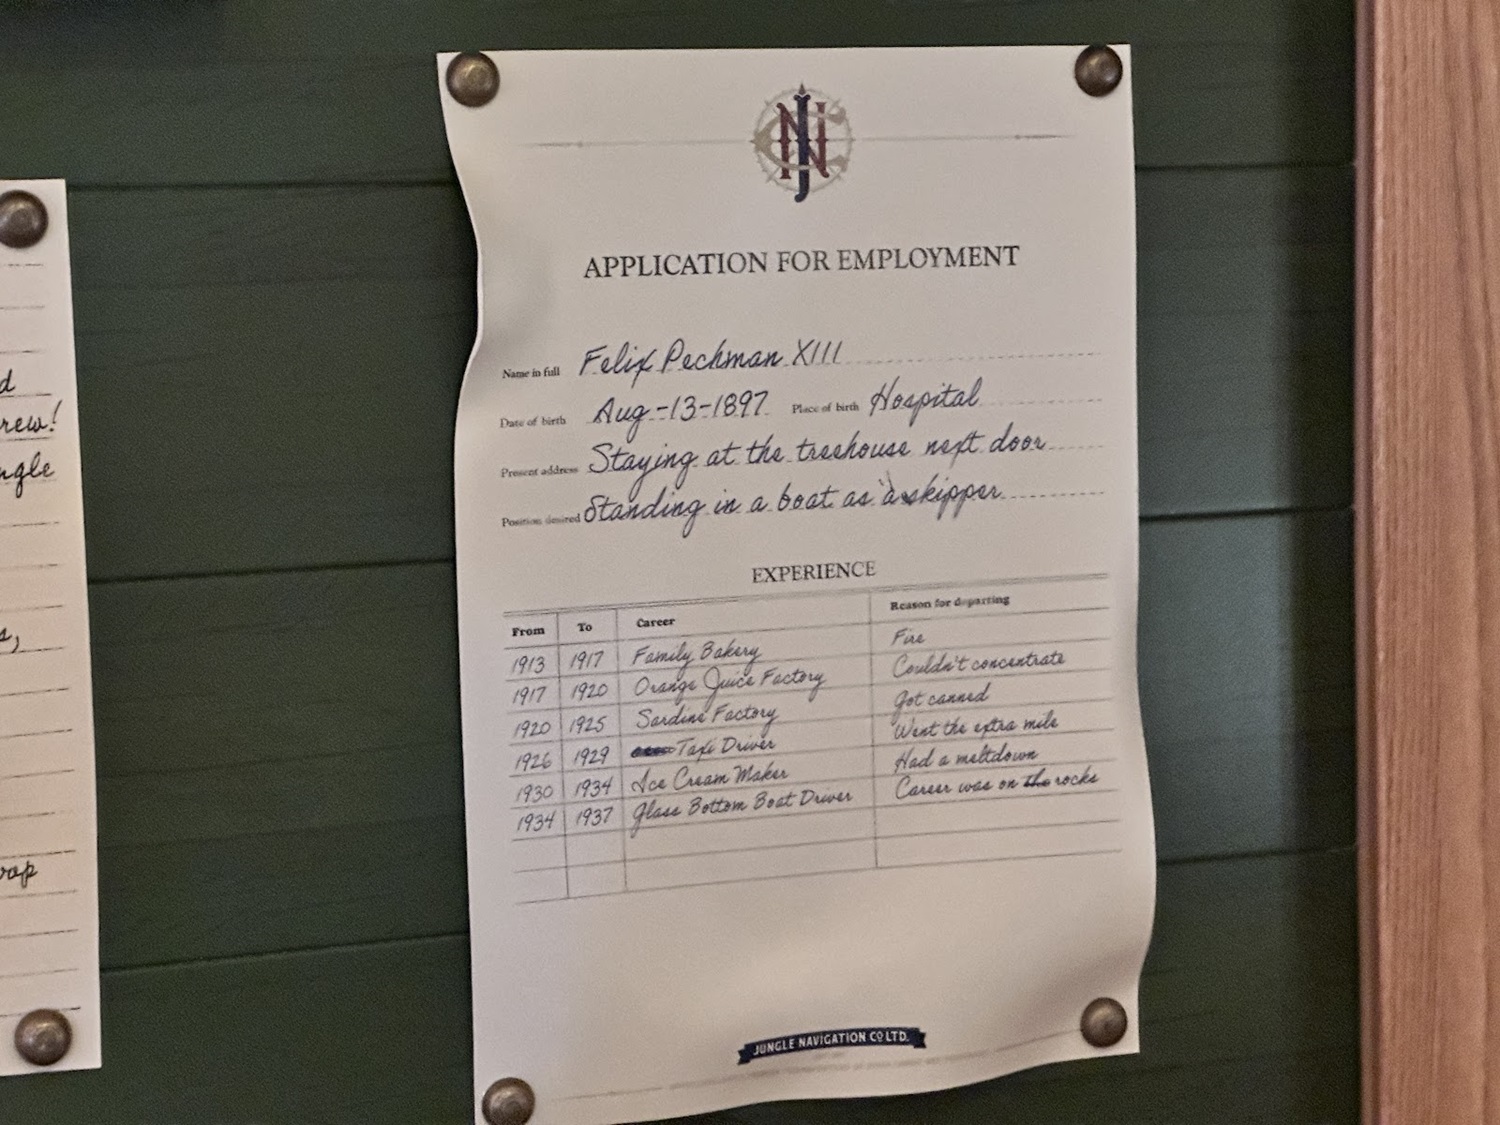 d
rew!
ngle
s,
rap
JNC
APPLICATION FOR EMPLOYMENT
Name in full Felix Pechman XIII
Date of birth Aug-13-1897 Place of birth Hospital
Present address Staying at the treehouse next door
Position desired Standing in a boat as a skipper
EXPERIENCE
From To Career Reason for departing
1913 1917 Family Bakery Fire
1917 1920 Orange Juice Factory Couldn't concentrate
1920 1925 Sardine Factory Got canned
1926 1929 Taxi Driver Went the extra mile
1930 1934 Ice Cream Maker Had a meltdown
1934 1937 Glass Bottom Boat Driver Career was on the rocks
JUNGLE NAVIGATION CO LTD.